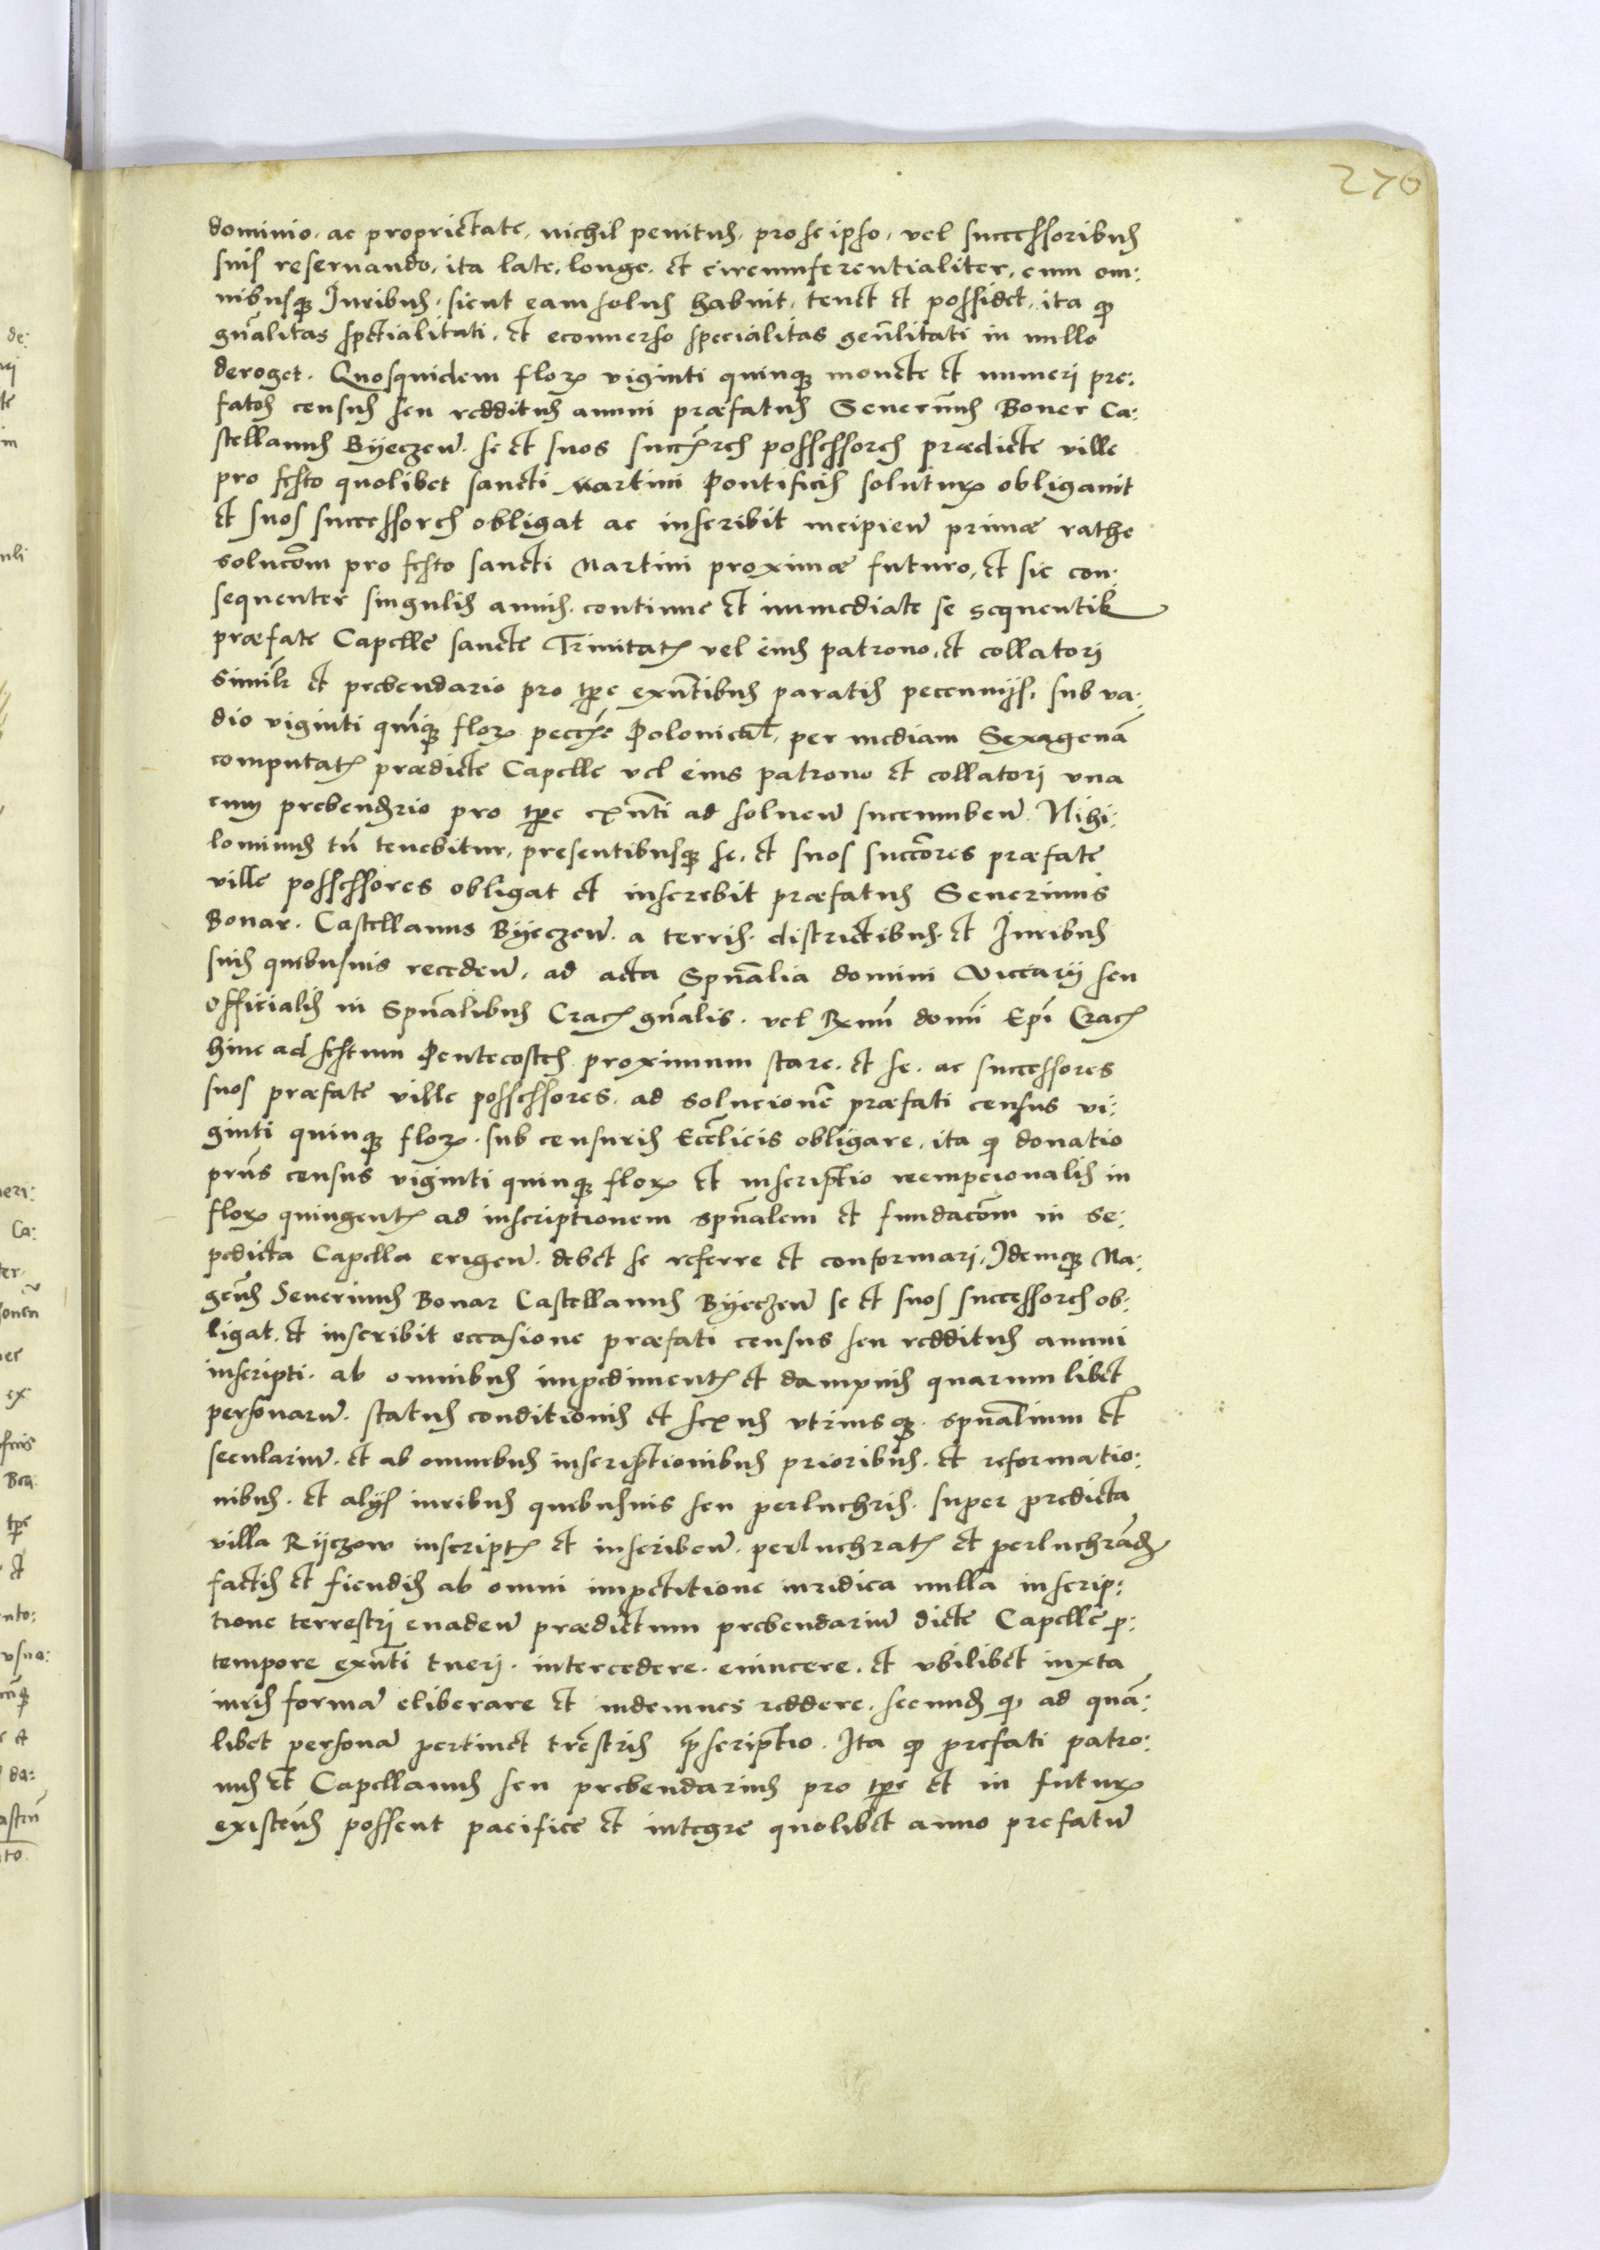 276
dominio, ac proprietate, nichil penitus, pro se ipso, vel successoribus
suis reseruando, ita late, longe, et circumferentialiter, cum om:
nibusq3 Iuribus, sicut eam solus habuit, tenet et possidet, ita qd
gn̄alitas spetialitati, et econuerso specialitas gen̄litati in nullo
deroget. Quosquidem florꝝ viginti quinq3 monete et numeri pre:
fatos census seu redditus annui præfatus Seuerin̄us Boner Ca:
stellanus Byeczen̄. se et suos succ̄res possessores prædicte ville
pro festo quolibet sancti Martini Pontificis soluturꝝ obligauit
et suos successores obligat ac inscribit incipien̄ primæ rathe
soluc̄om pro festo sancti Martini proximæ futuro, et sic con:
sequenter singulis annis, continue et immediate se sequentib3
præfate Capelle sancte Trinitatꝭ vel eius patrono, et collatori
simil̄r et prebendario pro tp̄e exn̄tibus paratis pecunijs, sub va:
dio viginti quinq3 florꝝ pecc̄ie Polonical̄, per mediam Sexagenā
computatꝭ prædicte Capelle vel eius patrono et collatori vna
cum prebendario pro tp̄e exn̄ti ad soluen̄ succumben̄. Nihi:
lominus tn̄ tenebitur, presentibusq3 se, et suos succ̄ores præfate
ville possessores obligat et inscrebit præfatus Seuerinus
Bonar. Castellanus Byeczen̄. a terris. districtibus. et Iuribus
suis quibusuis receden̄. ad acta Spn̄alia domini Viccarij seu
Officialis in Spn̄alibus Cracꝭ gn̄alis. vel Rxmū domī Epī Cracꝭ
hinc ad festum Pentecostes proximum stare. et se. ac successores
suos præfate ville possessores. ad solucionē præfati census vi:
ginti quinq3 florꝝ. sub censuris Eccl̄icis obligare, ita qd donatio
prn̄s census viginti quinq3 florꝝ et inscriptio reempcionalis in
florꝝ quingentꝭ ad inscriptionem spn̄alem et fundac̄om in se:
pedicta Capella erigen̄. debet se referre et conformari. Idemq3 Ma:
gcūs Seuerinus Bonar Castellanus Byeczen̄ se et suos successores ob:
ligat. et inscribit occasione præfati census seu redditus annui
inscripti. ab omnibus impedimentꝭ et dampnis quarumlibet
personarū. status conditionis et sexus vtriusq3. spn̄alium et
secularium. et ab omnibus inscriptionibus prioribus. et reformatio:
nibus. et alijs iuribus quibusuis seu perluchris. super predicta
villa Ryczow inscriptꝭ et inscriben̄. perluchratꝭ et perluchrandꝭ
factis et fiendis ab omni impetitione iuridica nulla inscrip:
tione terrestri euaden̄ prædictum prebendariū dicte Capelle p̄:
tempore exn̄ti tueri. intercedere. euincere. et vbilibet iuxta
iuris formā eliberare et indemnes reddere. secundꝭ qd ad quā:
libet personā pertinet trēstris p̄scriptio. Ita qd prefati patro:
nus et Capellanus seu prebendarius pro tp̄e et in futurꝝ
existen̄s possent pacifice et integre quolibet anno prefatū